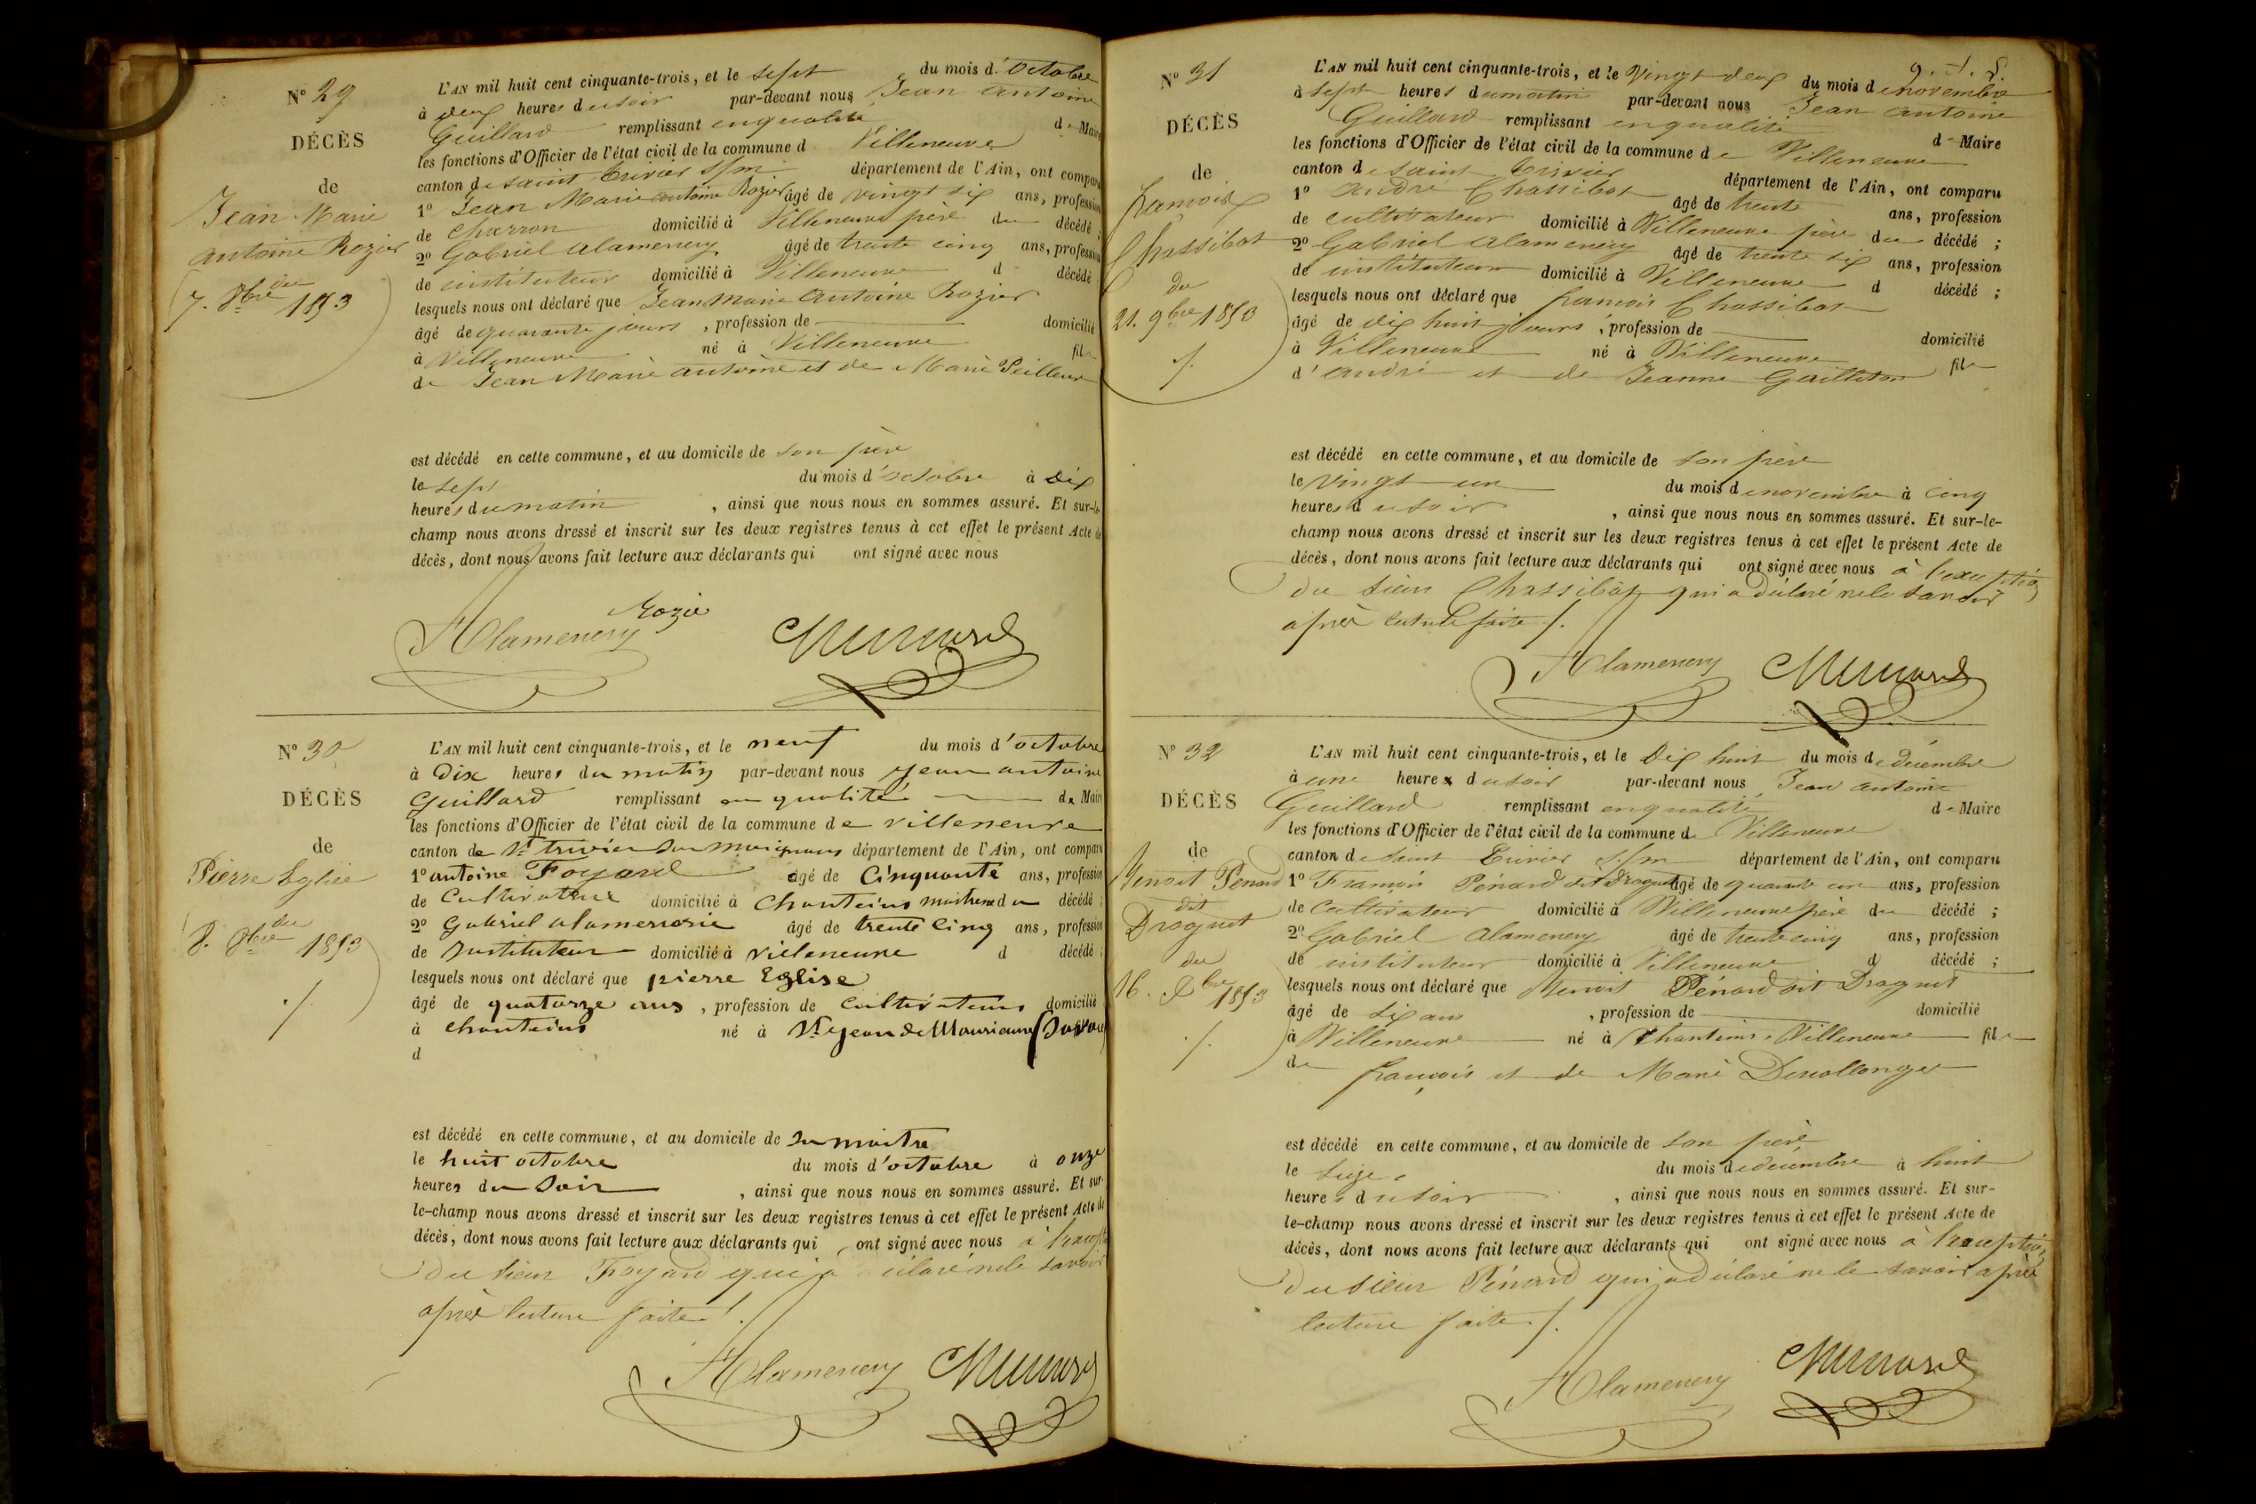 Nº 29
DÉCÈS
de
Jean Marie
antoine Rozier
du
7. 8bre 1853
L'AN mil huit cent cinquante-trois, et le sept du mois d'octobre
à deux heures du soir par-devant nous Jean antoine
Guillard remplissant en qualité de Maire
les fonctions d'Officier de l'état civil de la commune d Villeneuve
canton de saint trivier s/m département de l'Ain, ont comparu
1º Jean Marie antoine Rozier âgé de vingt six ans, profession
de charron domicilié à Villeneuve père du décédé ;
2º Gabriel alamenery âgé de trente cinq ans, profession
de instituteur domicilié à Villeneuve d décédé
lesquels nous ont déclaré que Jean Marie Antoine Rozier
âgé de quarante jours , profession de domicilié
à Villeneuve né à Villeneuve fils
de Jean Marie antoine et de Marie Peilleux
est décédé en cette commune, et au domicile de son père
le sept du mois d'octobre à dix
heures du matin , ainsi que nous nous en sommes assuré. Et sur-le-
champ nous avons dressé et inscrit sur les deux registres tenus à cet effet le présent Acte de
décès, dont nous avons fait lecture aux déclarants qui ont signé avec nous
Rozier
Alamenery
Nº 30
DÉCÈS
de
Pierre Eglise
du
8. 8bre 1853
L'AN mil huit cent cinquante-trois, et le neuf du mois d'octobre
à Dix heures du matin par-devant nous Jean antoine
Guillard remplissant en qualité de Maire
les fonctions d'Officier de l'état civil de la commune de villeneuve
canton de St trivier sur moignans département de l'Ain, ont comparu
1º antoine Foyard âgé de Cinquante ans, profession
de Cultivateur domicilié à Chanteins maitre du décédé ;
2º gabriel alamenerie âgé de trente Cinq ans, profession
de Instituteur domicilié à villeneuve d décédé ;
lesquels nous ont déclaré que pierre Eglise
âgé de quatorze ans , profession de Cultivateur domicilié
à chanteins né à St jean de Maurienne (Savoie
d
est décédé en cette commune, et au domicile de Son maitre
le huit octobre du mois d'octobre à onze
heures du Soir , ainsi que nous nous en sommes assuré. Et sur-
le-champ nous avons dressé et inscrit sur les deux registres tenus à cet effet le présent Acte de
décès, dont nous avons fait lecture aux déclarants qui ont signé avec nous à l'exception
du sieur Foyard qui a déclaré ne le savoir
après lecture faite ./.
Alamenery
9. + 5.
Nº 31
DÉCÈS
de
françois
Chassibot
du
21. 9bre 1853
./.
L'AN mil huit cent cinquante-trois, et le Vingt deux du mois de novembre
à sept heures du matin par-devant nous Jean antoine
Guillard remplissant en qualité de Maire
les fonctions d'Officier de l'état civil de la commune de Villeneuve
canton de saint trivier département de l'Ain, ont comparu
1º andré Chassibot âgé de trente ans, profession
de cultivateur domicilié à Villeneuve père du décédé ;
2º Gabriel alamenery âgé de trente six ans, profession
de instituteur domicilié à Villeneuve d décédé ;
lesquels nous ont déclaré que françois Chassibot
âgé de dix huit jours , profession de domicilié
à Villeneuve né à Villeneuve fils
d'andré et de Jeanne Gailleton
est décédé en cette commune, et au domicile de son père
le vingt un du mois de novembre à cinq
heures du soir , ainsi que nous nous en sommes assuré. Et sur-le-
champ nous avons dressé et inscrit sur les deux registres tenus à cet effet le présent Acte de
décès, dont nous avons fait lecture aux déclarants qui ont signé avec nous à l'exception
du sieur Chassibot qui a déclaré ne le savoir
après lecture faite ./.
Alamenery
Nº 32
DÉCÈS
de
Benoit Pénard
dit
Draguet
du
16. Xbre 1853
./.
L'AN mil huit cent cinquante-trois, et le Dix huit du mois de décembre
à une heure du soir par-devant nous Jean antoine
Guillard remplissant en qualité de Maire
les fonctions d'Officier de l'état civil de la commune d Villeneuve
canton de saint trivier s/m département de l'Ain, ont comparu
1º François Pénard dit Draguet âgé de quarante un ans, profession
de Cultivateur domicilié à Villeneuve père du décédé ;
2º Gabriel Alamenery âgé de trente cinq ans, profession
de instituteur domicilié à Villeneuve d décédé ;
lesquels nous ont déclaré que Benoit Pénard dit Draguet
âgé de six ans , profession de domicilié
à Villeneuve né à Chanteins, Villeneuve fils
de françois et de Marie Desollanges
est décédé en cette commune, et au domicile de son père
le seize du mois de décembre à huit
heures du soir , ainsi que nous nous en sommes assuré. Et sur-
le-champ nous avons dressé et inscrit sur les deux registres tenus à cet effet le présent Acte de
décès, dont nous avons fait lecture aux déclarants qui ont signé avec nous à l'exception
du sieur Pénard qui a déclaré ne le savoir après
lecture faite ./.
Alamenery